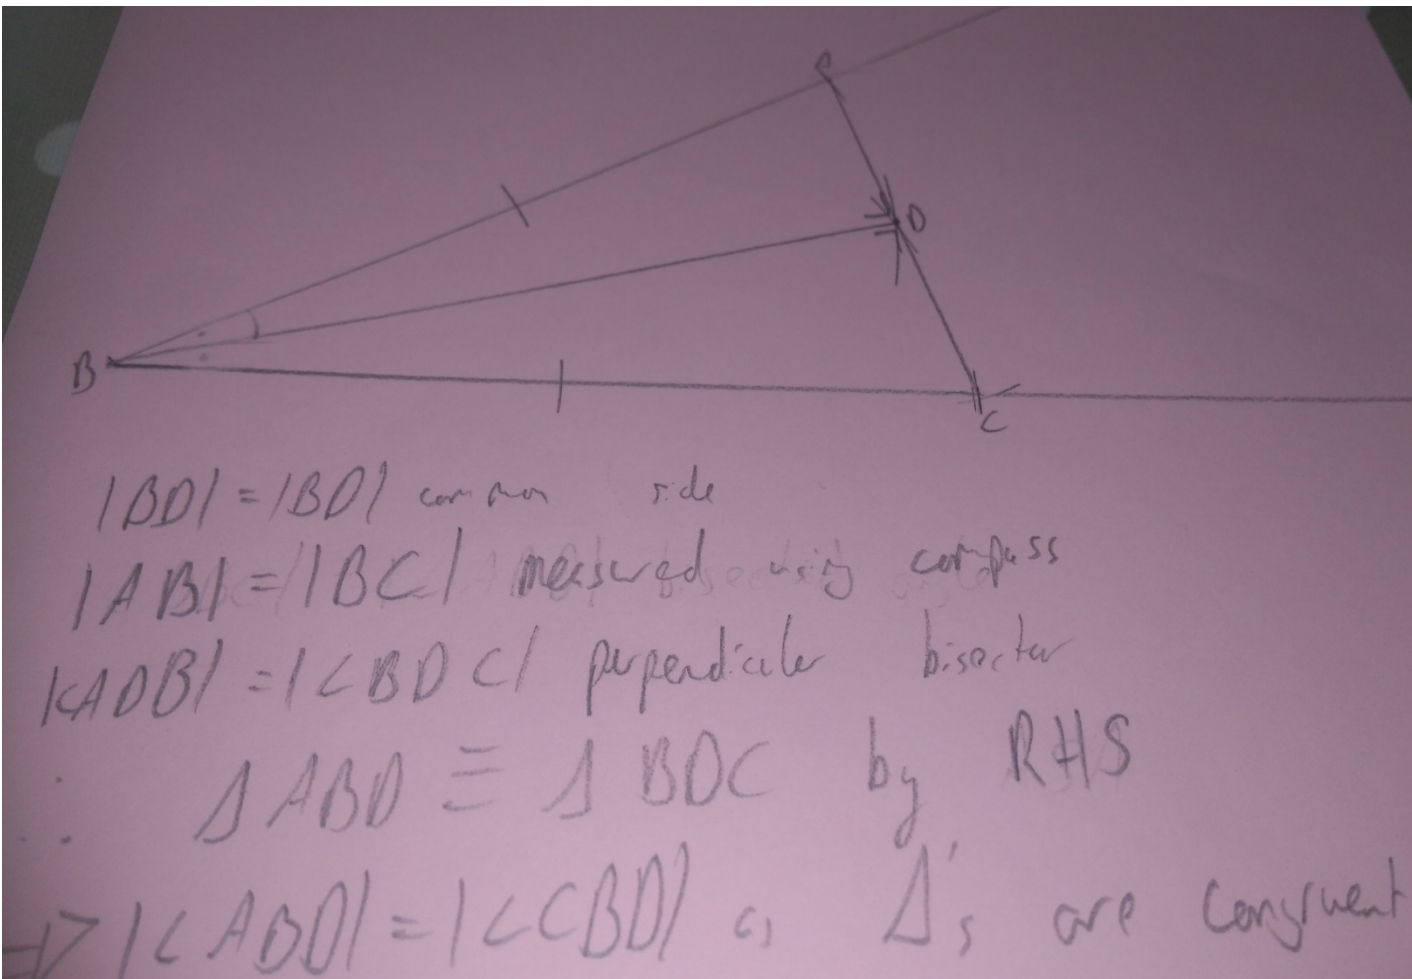 A
D
B
C
|BD| = |BD| common side
|AB| = |BC| measured using compass
|<ADB| = |<BDC| perpendicular bisector
∴ Δ ABD ≡ Δ BDC by RHS
=> |<ABD| = |<CBD| as Δ's are congruent